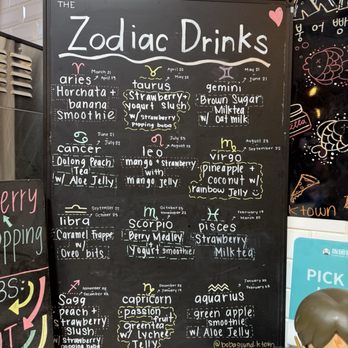 THE
Zodiac Drinks
March 21
April 19
aries
Horchata +
banana
smoothie
April 20
May 20
taurus
Strawberry +
yogurt slush
w/ strawberry
popping boba
May 21
June 21
gemini
Brown Sugar
Milktea
w/ Oat milk
June 21
July 22
cancer
Oolong Peach
Tea
w/ Aloe Jelly
July 23
August 22
leo
mango + strawberry
with
mango jelly
August 23
September 22
virgo
pineapple +
Coconut w/
rainbow Jelly
September 23
October 23
libra
Caramel Frappe
w/
Oreo bits
scorpio
Berry Medley
+
Yogurt Smoothie
February 19
March 20
pisces
Strawberry
Milktea
Sagg
peach +
strawberry
Slush
strawberry
popping boba
capricorn
passion
fruit
greentea
w/ Lychee
Jelly
aquarius
green apple
smoothie
w/ Aloe Jelly
@bobaound.ktown
erry
opping
PICK
ktown